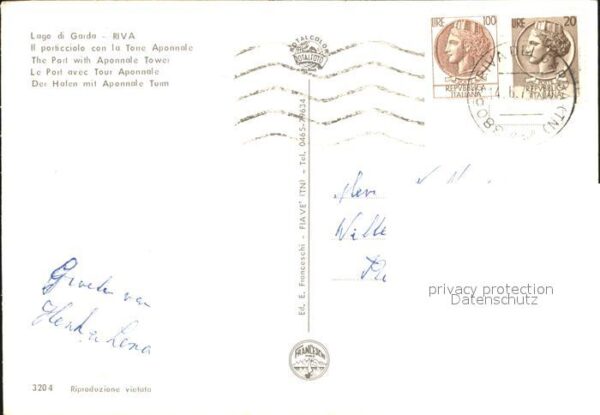 Lago di Garda - RIVA
Il porticciolo con la Torre Aponnale
The Port with Aponnale Tower
Le Port avec Tour Aponnale
Der Hafen mit Aponnale Turm
TOTALCOLOR
TOTALFOTO
LIRE 100
REPVBBLICA
ITALIANA
LIRE 20
REPVBBLICA
ITALIANA
RIVA DEL
(TN)
Ed. E. Franceschi - FIAVÈ (TN) - Tel. 0465-
Groeten van
Henk en Lena
privacy protection
Datenschutz
FRANCESCHI
3204 Riproduzione vietata